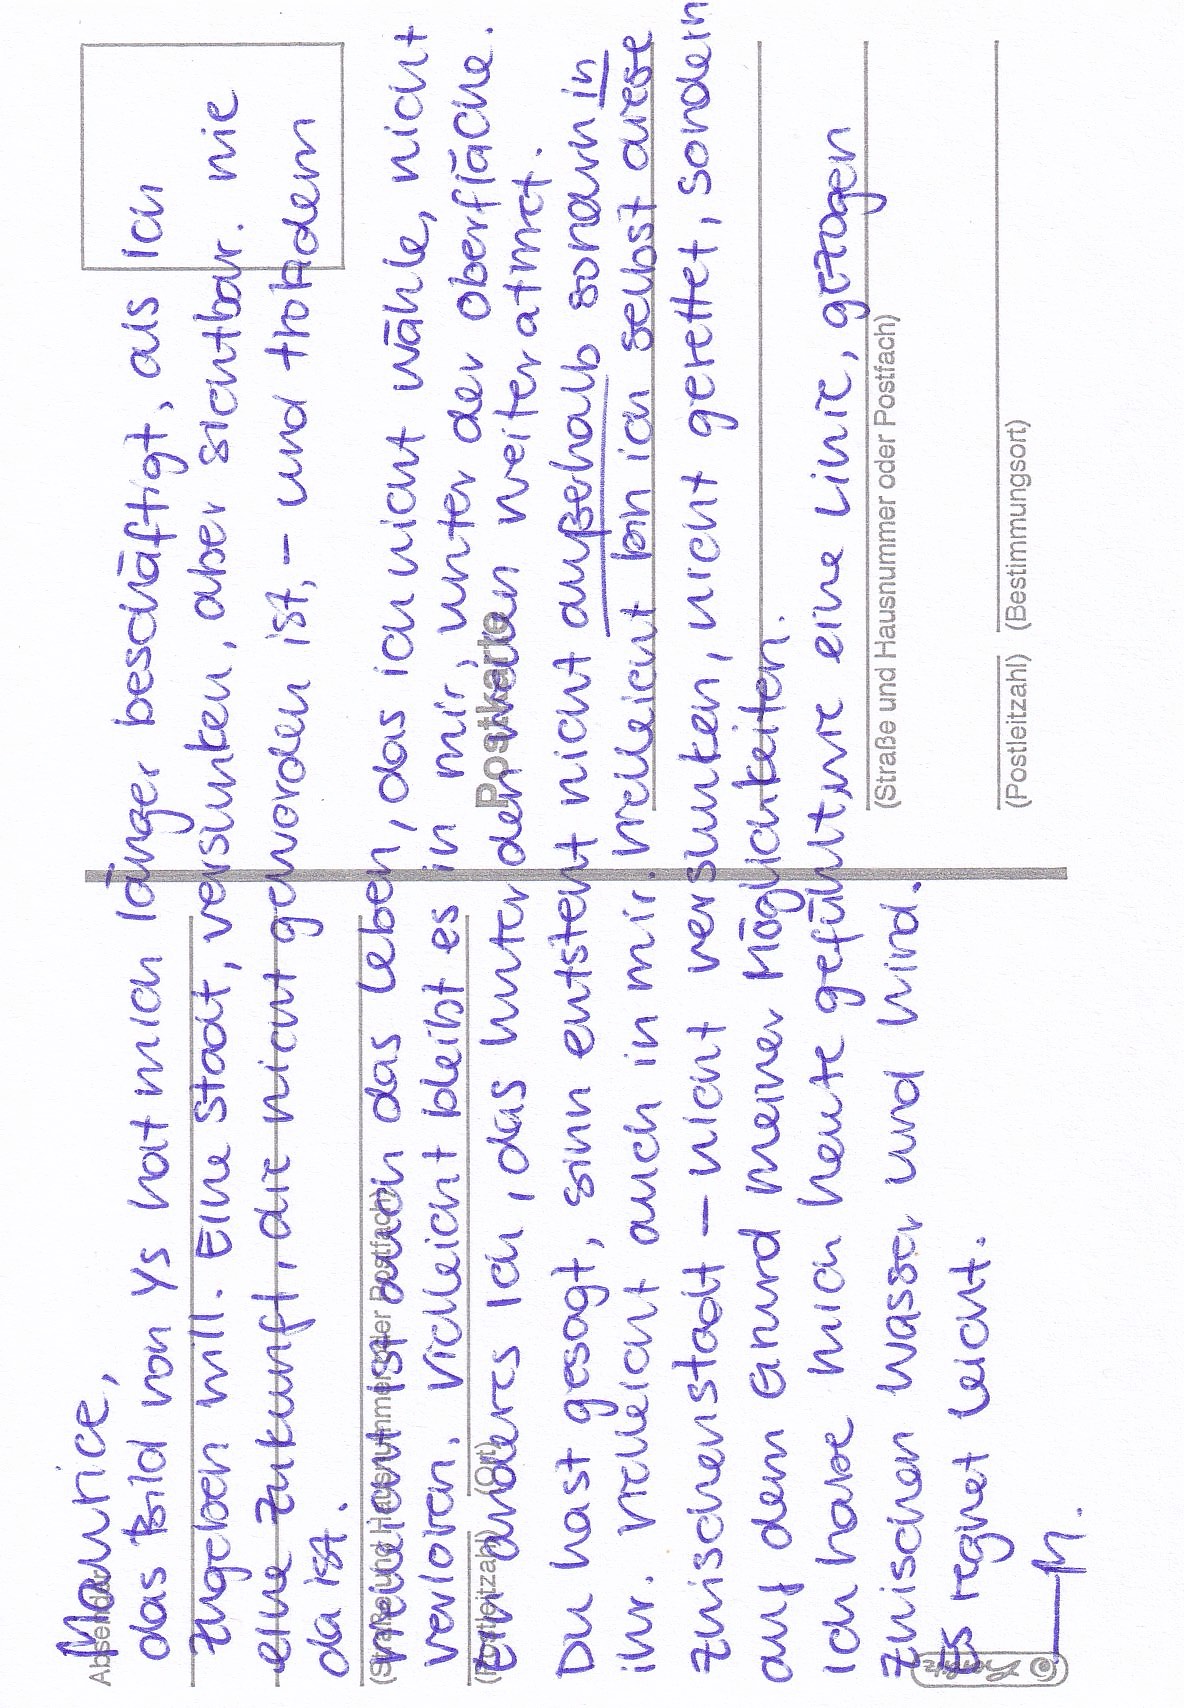 Maurice,
Absender
das Bild von Ys hat mich länger beschäftigt, als ich
zugeben will. Eine Stadt, versunken, aber sichtbar. Wie
eine Zukunft, die nicht geworden ist, – und trotzdem
da ist.
Vielleicht ist auch das Leben, das ich nicht wähle, nicht
(Straße und Hausnummer oder Postfach)
verloren. Vielleicht bleibt es in mir, unter der Oberfläche.
(Postleitzahl) (Ort)
Postkarte
Ein anderes Ich, das unter den Wellen weiter atmet.
Du hast gesagt, Sinn entsteht nicht außerhalb sondern in
ihr. Vielleicht auch in mir. Vielleicht bin ich selbst diese
Zwischenstadt – nicht versunken, nicht gerettet, sondern
auf dem Grund meiner Möglichkeiten.
Ich habe mich heute gefühlt, wie eine Linie, gezogen
zwischen Wasser und Wind.
(Straße und Hausnummer oder Postfach)
Es regnet leicht.
(Postleitzahl) (Bestimmungsort)
— M.